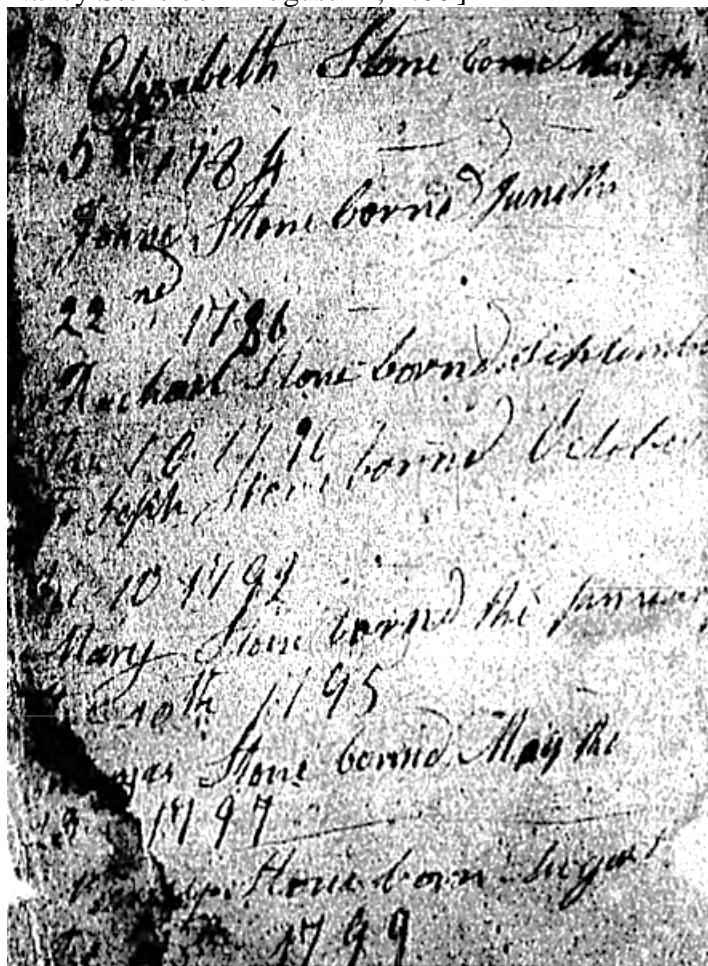 Elizabeth Stone borned May the
5th 1784
Johne Stone borned June the
22nd 1786
Rachael Stone borned September
the 10 1790
Joseph Stone borned October
the 10 1792
Mary Stone borned the January
the 10th 1795
Stone borned May the
1797
Stone born August
1799